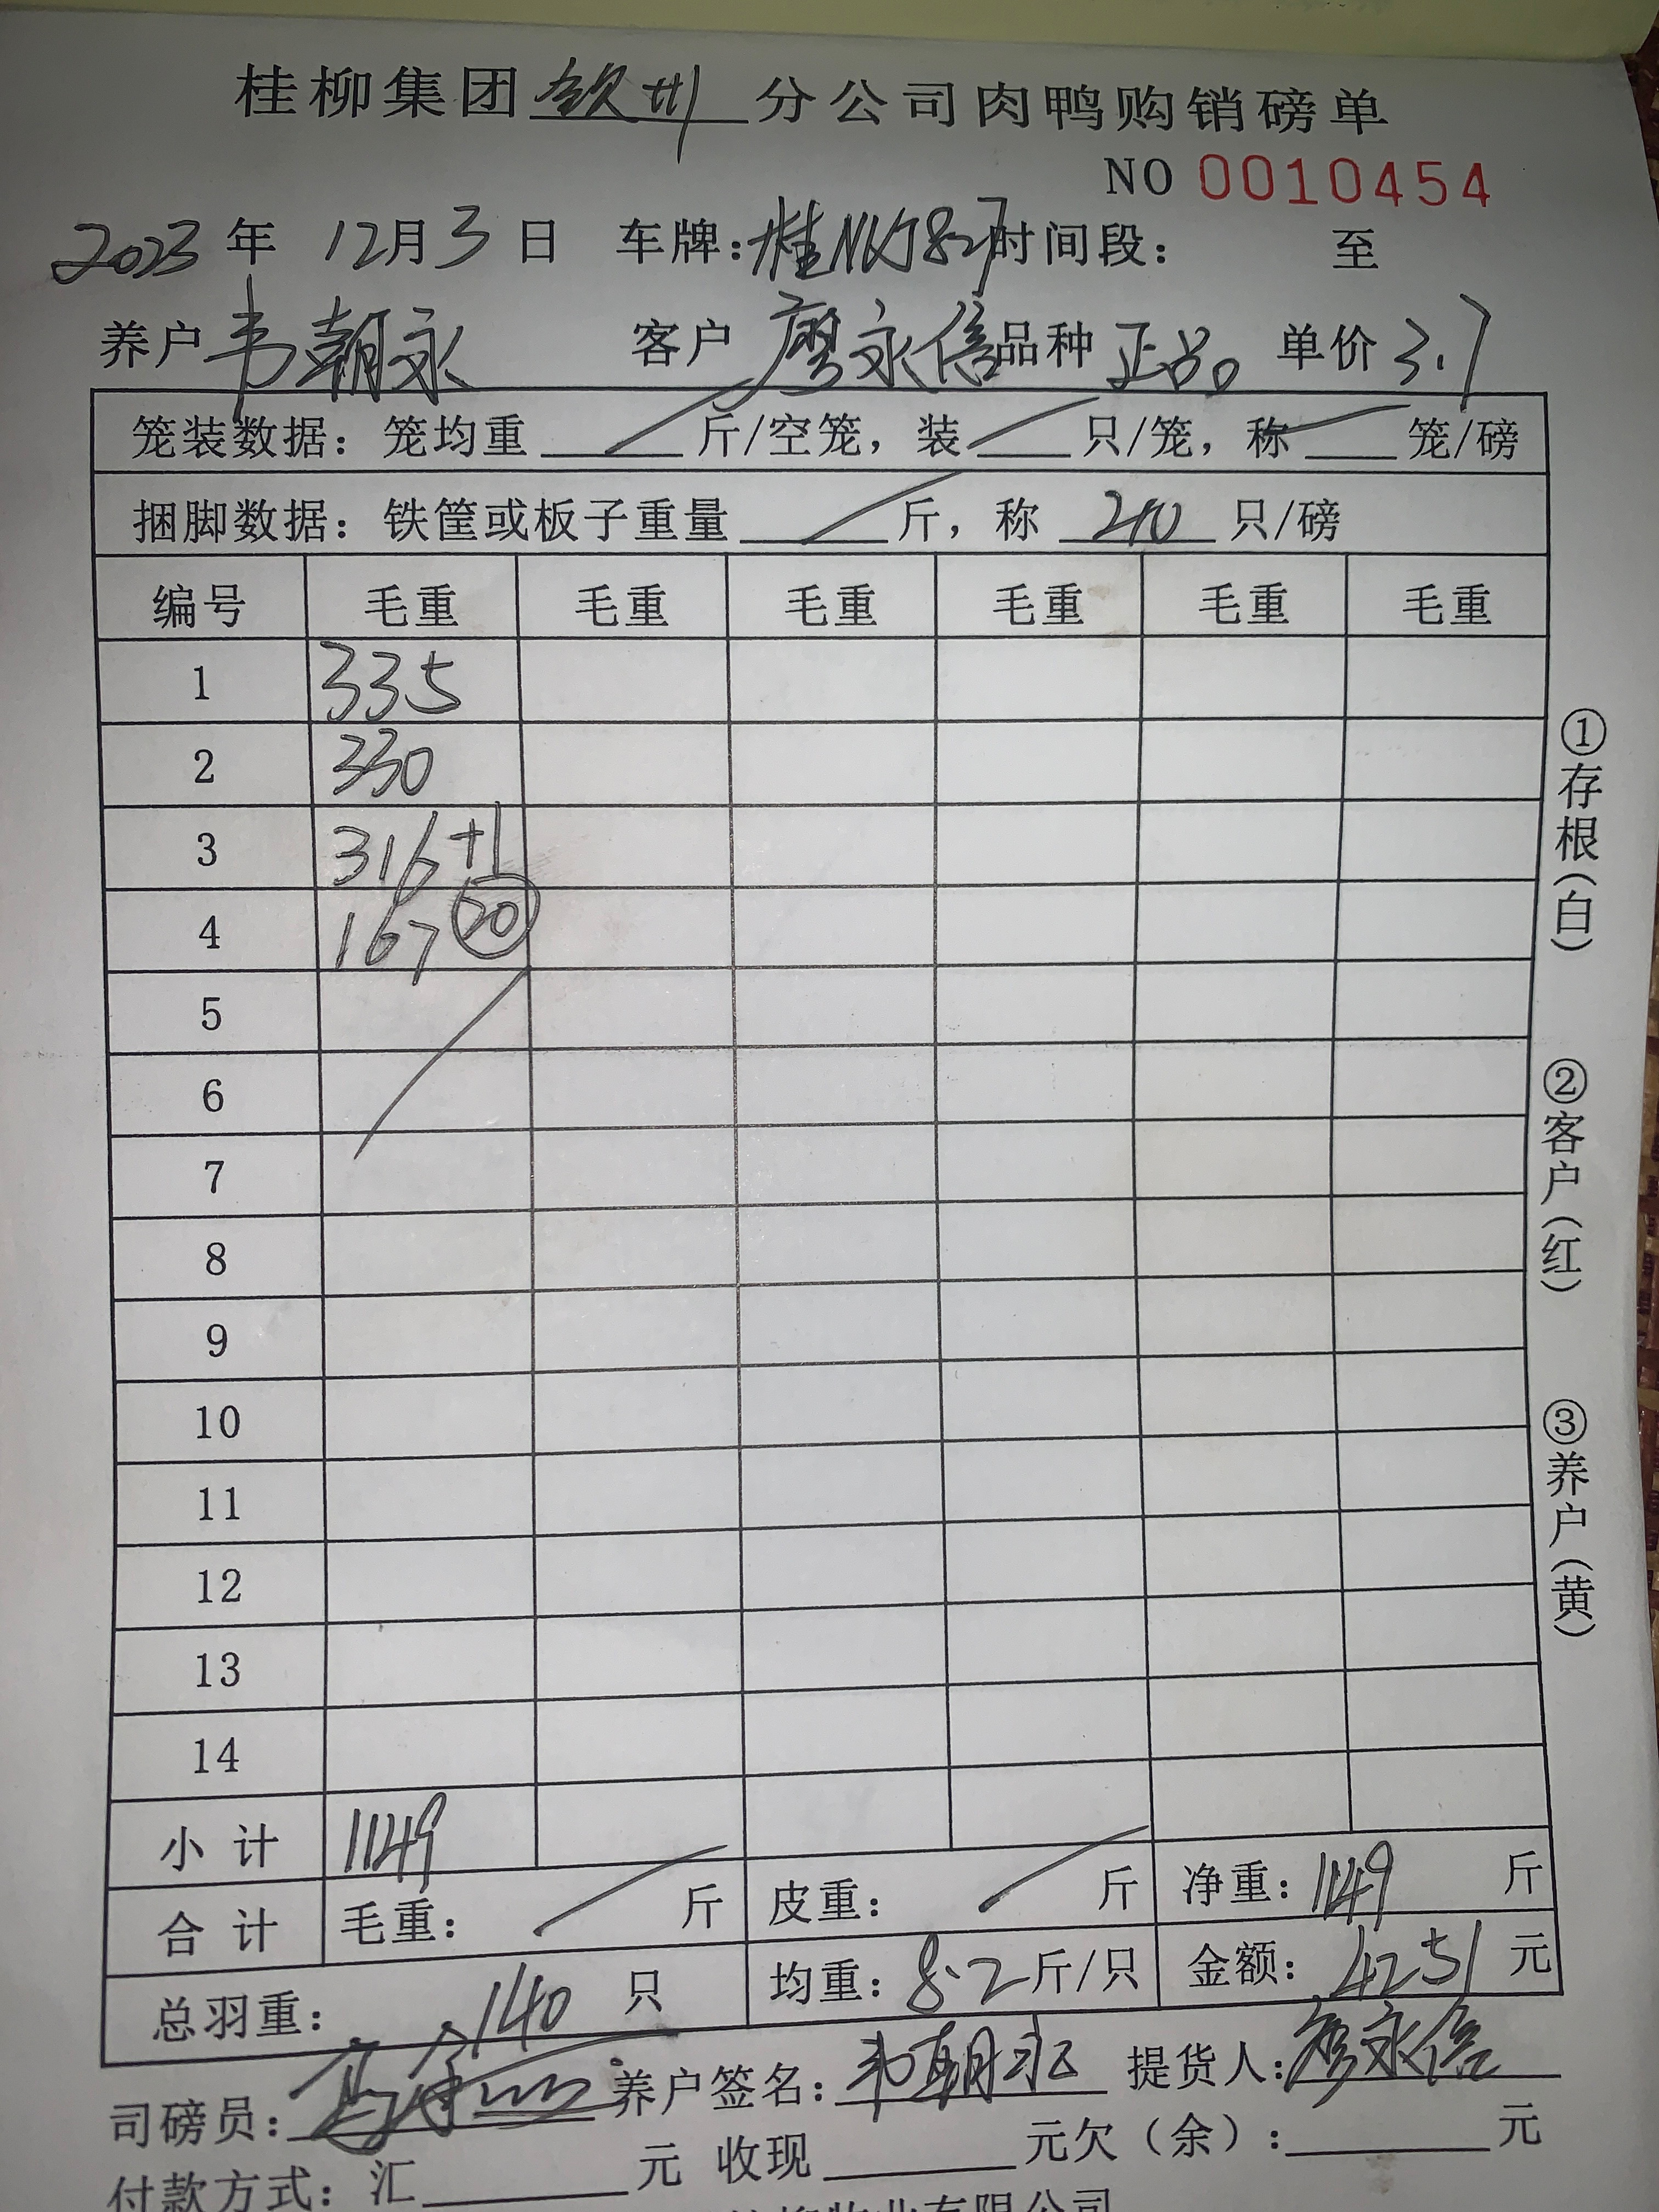 桂柳集团 钦州 分公司肉鸭购销磅单
NO 0010454
2023 年 12月 3 日 车牌: 时间段: 至
养户 韦朝永 客户 廖永信 品种 正品 单价 3.7
笼装数据: 笼均重 斤/空笼, 装 只/笼, 称 笼/磅
捆脚数据: 铁筐或板子重量 斤, 称 240 只/磅
编号 毛重 毛重 毛重 毛重 毛重 毛重
1 335
2 330
3 316+1
4 167 20
5
6
7
8
9
10
11
12
13
14
小计 1149
合计 毛重: 斤 皮重: 斤 净重: 1149 斤
总羽重: 140 只 均重: 8.2 斤/只 金额: 4251 元
司磅员: 养户签名: 韦朝永 提货人: 廖永信
付款方式: 汇 元 收现 元欠(余): 元
①存根(白)
②客户(红)
③养户(黄)